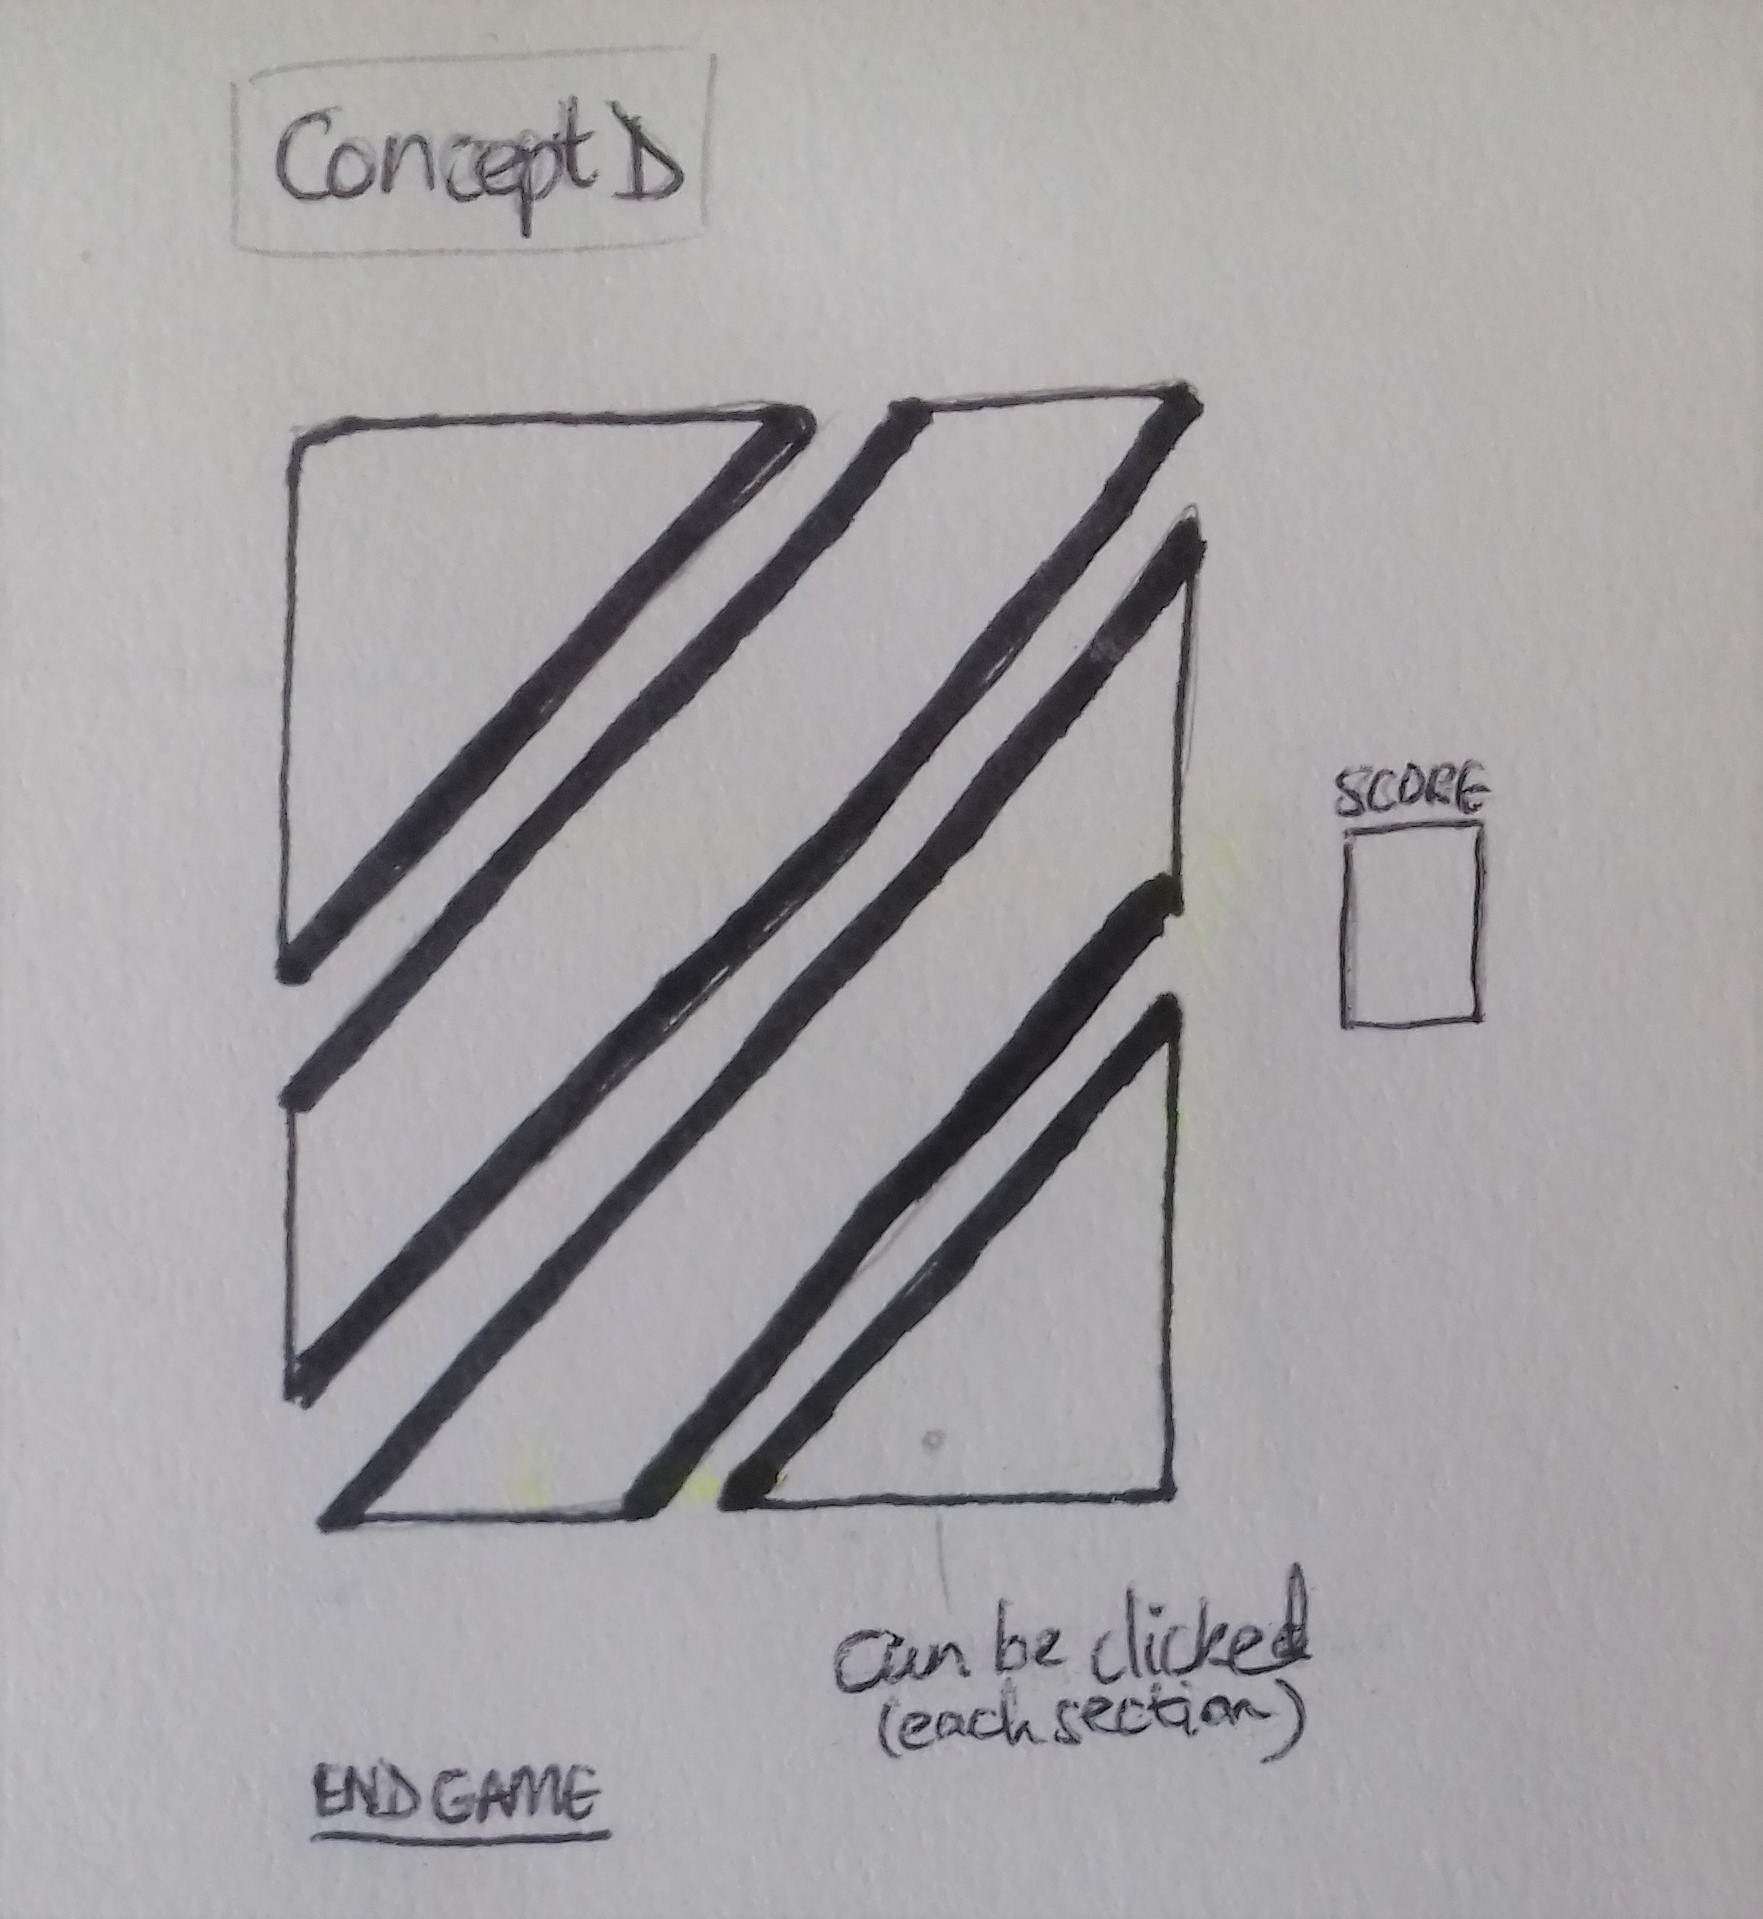 Concept D
SCORE
can be clicked
(each section)
END GAME